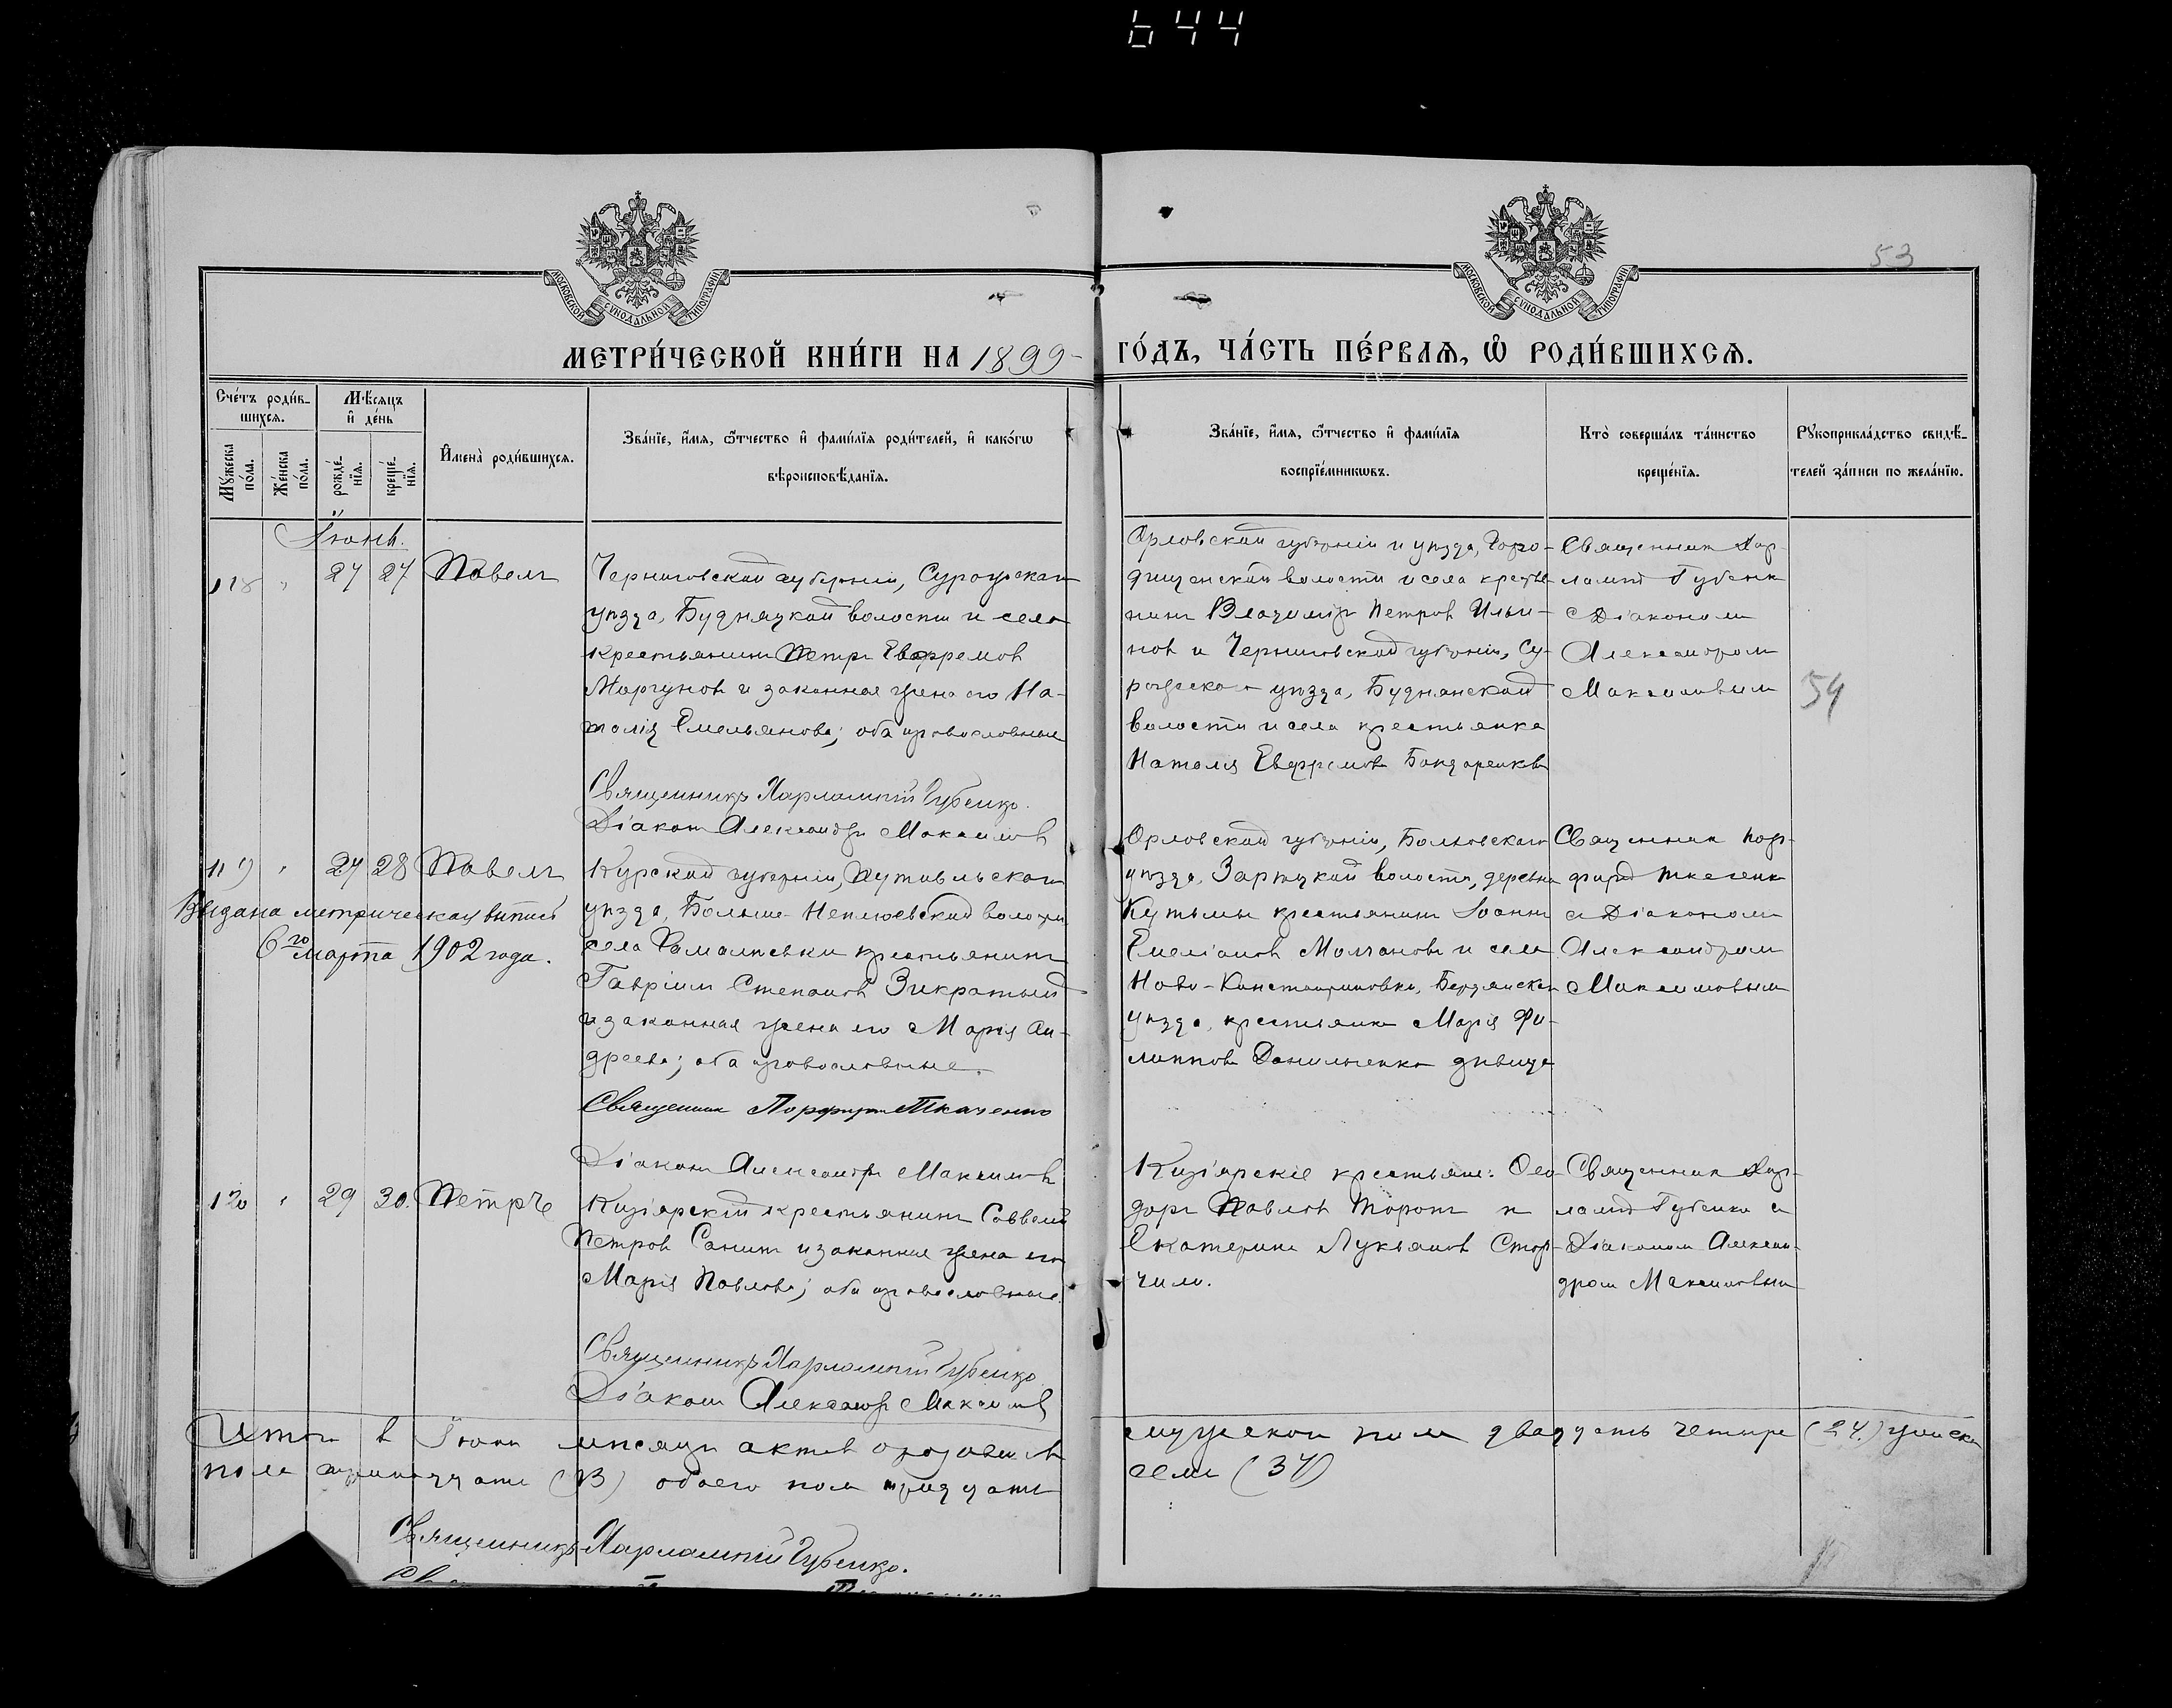 644
53
МОСКОВСКОЙ СѴНОДАЛЬНОЙ ТИПОГРАФІИ
МОСКОВСКОЙ СѴНОДАЛЬНОЙ ТИПОГРАФІИ
МЕТРИ́ЧЕСКОЙ КНИ́ГИ НА 1899 ГО́ДЪ, ЧА́СТЬ ПЕ́РВАЯ, Ѽ РОДИ́ВШИХСЯ.
Сче́тъ роди́в-
шихся.
Мѣ́сяцъ
и҆ де́нь
Мꙋ́жеска
по́ла.
Же́нска
по́ла.
рожде́-
нїя.
креще́-
нїя.
И҆мена̀ роди́вшихся.
Зва́нїе, и҆́мя, ѻ҆́тчество и҆ фами́лїя роди́телей, и҆ како́гѡ
вѣроисповѣ́данїя.
Зва́нїе, и҆́мя, ѻ҆́тчество и҆ фами́лїя
воспрїе́мникѡвъ.
Кто̀ соверша́лъ та́инство
креще́нїя.
Рꙋкоприкла́дство свидѣ́-
телей за́писи по жела́нїю.
Іюнь.
118 " 27 27 Павелъ
Черниговской губерніи, Суражскаго
уѣзда, Будняцкой волости и села
крестьянинъ Петръ Евфремовъ
Моргуновъ и законная жена его На-
талія Емельянова; оба православные
Священникъ Харлампій Губенко.
Діаконъ Александръ Максимовъ
Орловской губерніи и уѣзда, Горо-
дищенской волости и села крестья-
нинъ Владиміръ Петровъ Ильи-
новъ и Черниговской губерніи, Су-
ражскаго уѣзда, Буднянской
волости и села крестьянка
Наталія Евфремова Бондаренкова
Священник Хар-
лампій Губенко
с Діакономъ
Александромъ
Максимовымъ
54
119 " 27 28 Павелъ
Выдана метрическая выпись
6го марта 1902 года.
Курской губерніи, Путивльскаго
уѣзда, Больше-Неплюевской волости,
села крестьянинъ
Гавріилъ Степановъ Зикратый
и законная жена его Марія Ан-
дреева; оба православные.
Священник Порфирій Ткаченко
Діаконъ Александръ Максимовъ
Орловской губерніи, Болховскаго
уѣзда, волости, деревни
крестьянинъ Іоаннъ
Емеліановъ Молчановъ и села
Ново-Константиновки, Бердянскаго
уѣзда, крестьянка Марія Фи-
липпова Данильченко дѣвица
Священник Пор-
фирій Ткаченко
с Діакономъ
Александромъ
Максимовымъ
120 " 29 30. Петръ
Кизіярскій крестьянинъ Савелій
Петровъ Санинъ и законная жена его
Марія Павлова; оба православные.
Священникъ Харлампій Губенко
Діаконъ Александръ Максимовъ
Кизіярскіе крестьяне: Ѳео-
доръ Павловъ и
Екатерина Лукьянова Стор-
чило.
Священник Хар-
лампій Губенко с
Діакономъ Алексан-
дромъ Максимовымъ
Итого в Іюнѣ мѣсяцѣ актовъ о родившихся мужескаго пола двадцать четыре (24) женскаго
пола тринадцать (13) обоего пола тридцать семь (37)
Священникъ Харлампій Губенко.